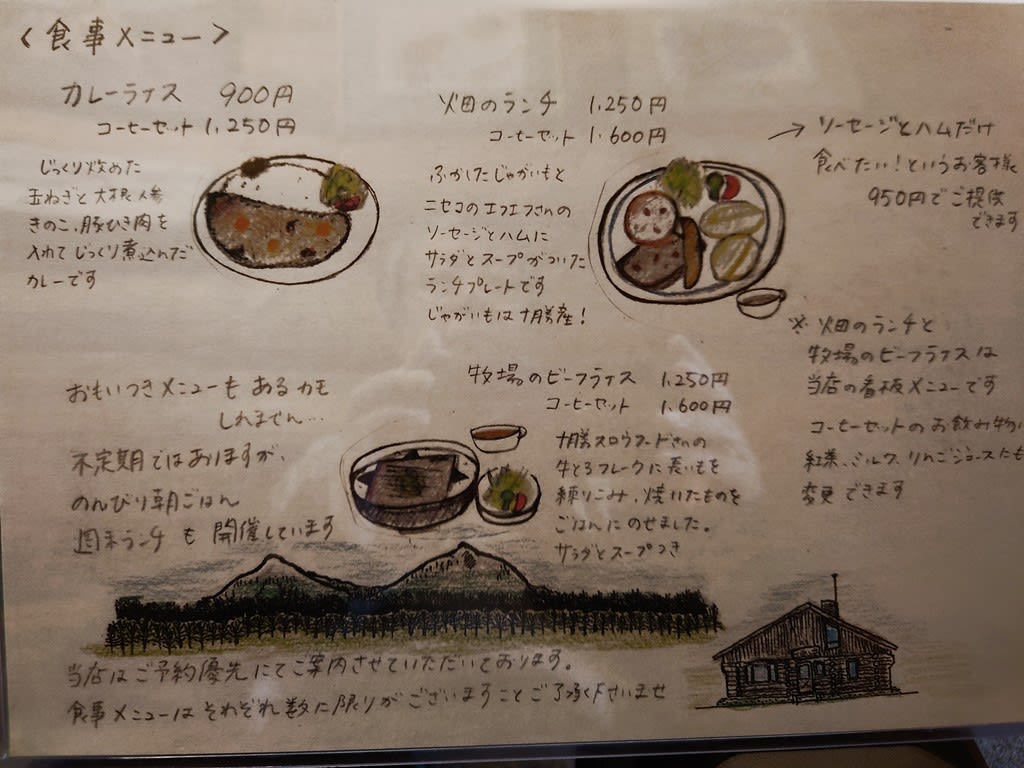 〈食事メニュー〉
カレーライス 900円
コーヒーセット 1,250円
じっくり炒めた
玉ねぎと大根人参
きのこ、豚ひき肉を
入れてじっくり煮込んだ
カレーです
畑のランチ 1,250円
コーヒーセット 1,600円
ふかしたじゃがいもと
ニセコのエフエフさんの
ソーセージとハムに
サラダとスープがついた
ランチプレートです
じゃがいもは十勝産!
→ソーセージとハムだけ
食べたい!というお客様
950円でご提供
できます
※畑のランチと
牧場のビーフライスは
当店の看板メニューです
コーヒーセットのお飲み物は
紅茶、ミルク、りんごジュースにも
変更できます
おもいつきメニューもあるカモ
しれません…
不定期ではありますが、
のんびり朝ごはん
週末ランチも開催しています
牧場のビーフライス 1,250円
コーヒーセット 1,600円
十勝スロウフードさんの
牛とろフレークに長いもを
練りこみ、焼いたものを
ごはんにのせました。
サラダとスープつき
当店はご予約優先にてご案内させていただいております。
食事メニューはそれぞれ数に限りがございますことご了承下さいませ